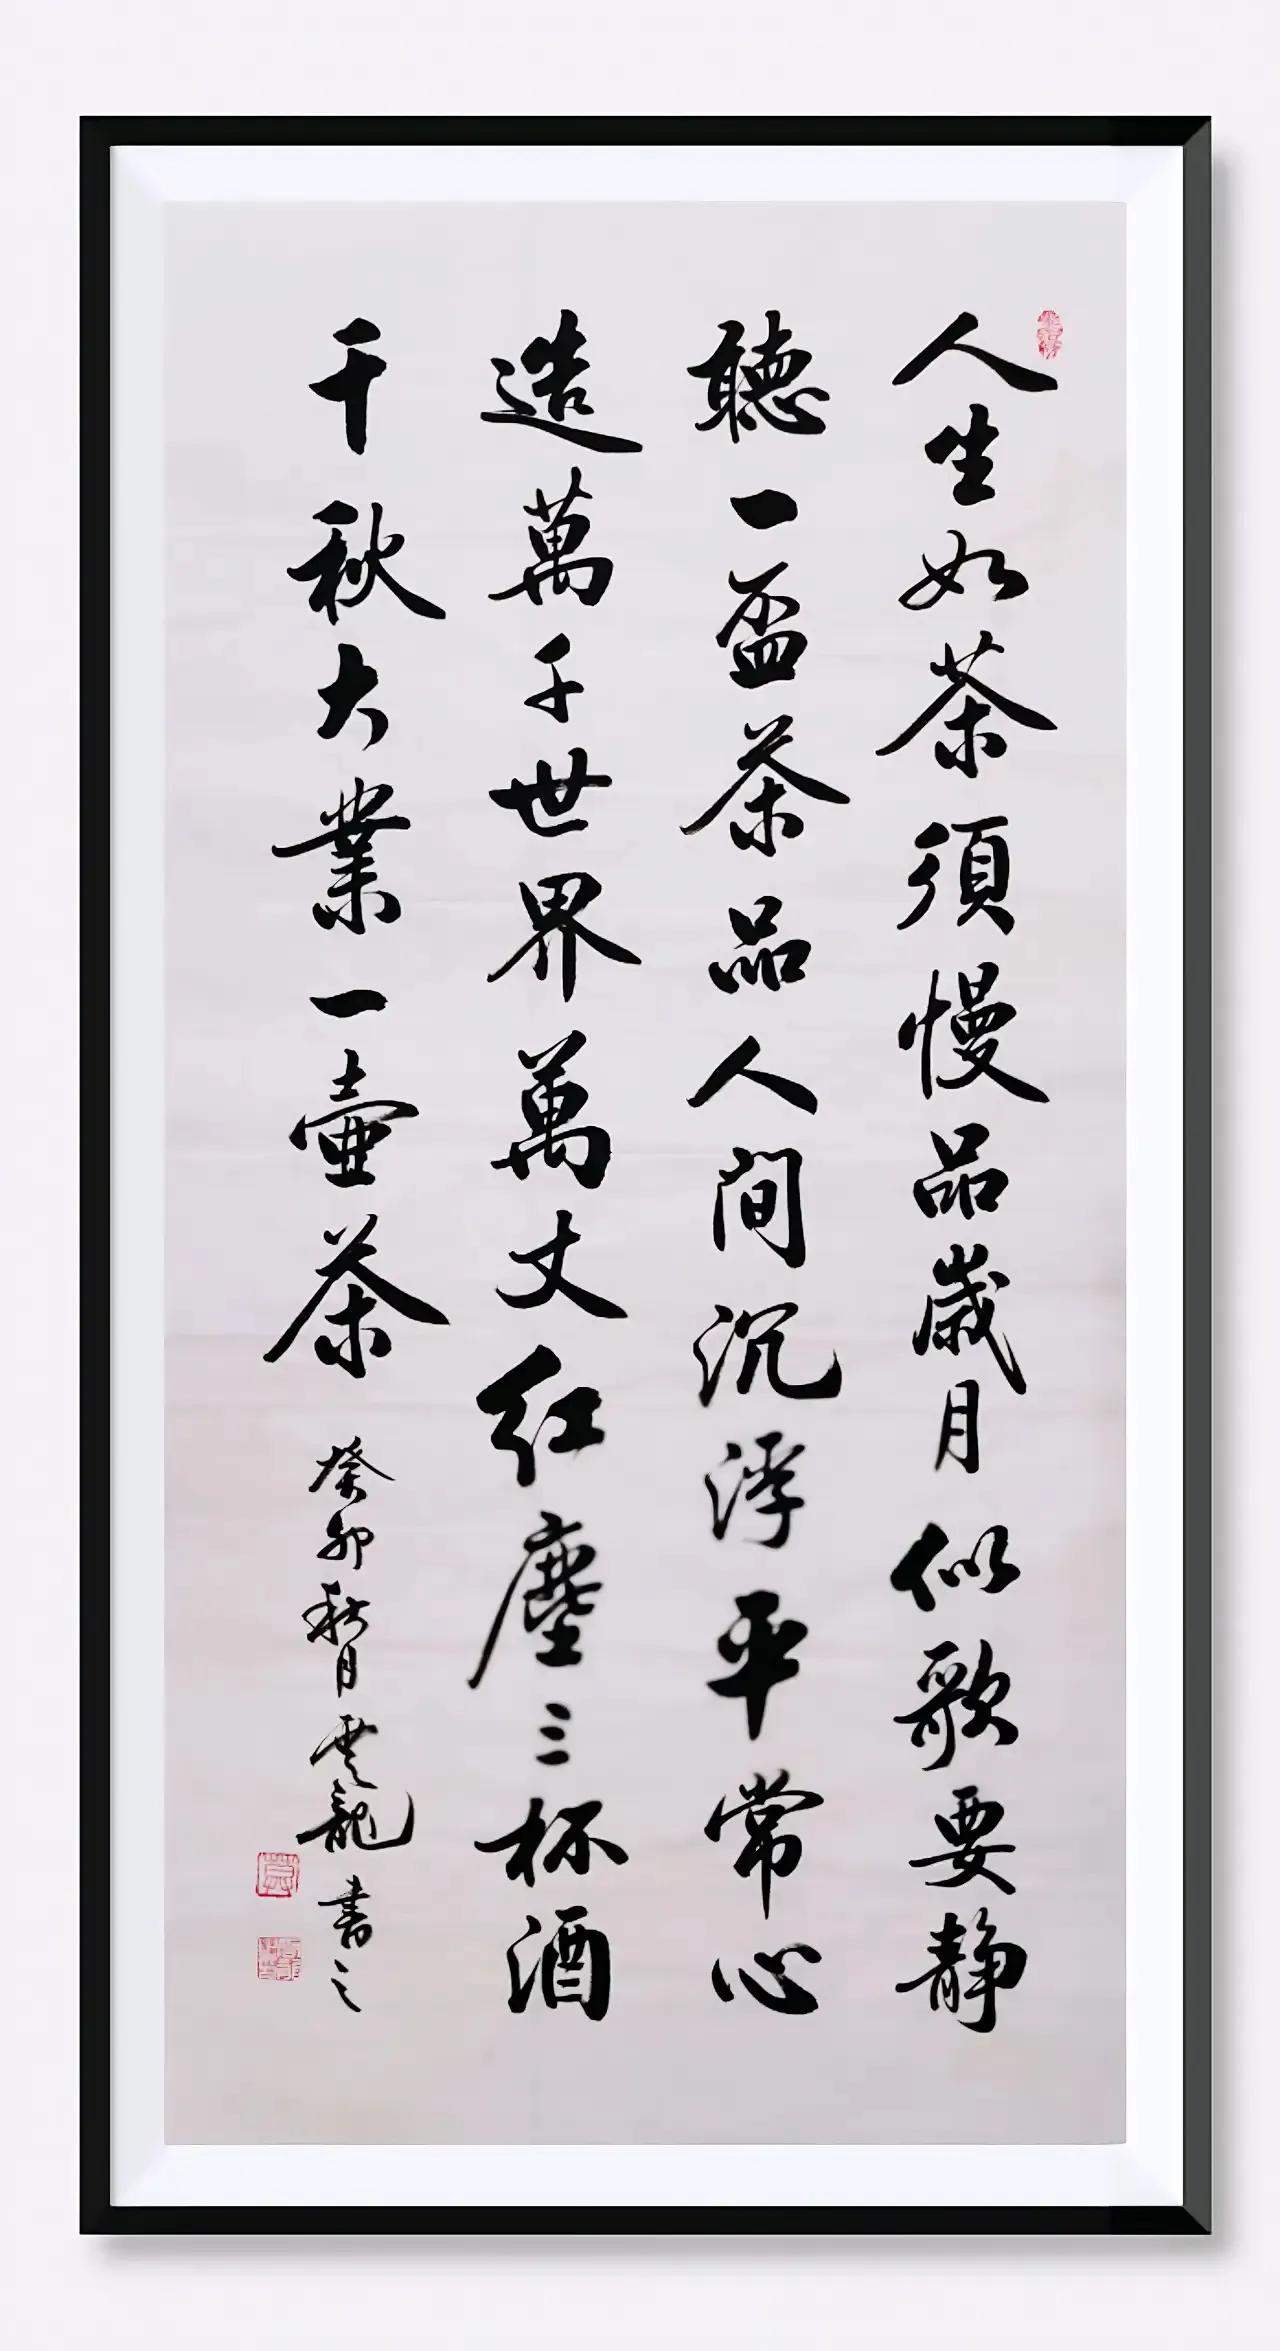 人生如茶須慢品歲月似歌要静
聽一盃茶品人间沉浮平常心
造萬千世界萬丈红塵三杯酒
千秋大業一壺茶
癸卯秋月雲龍书之